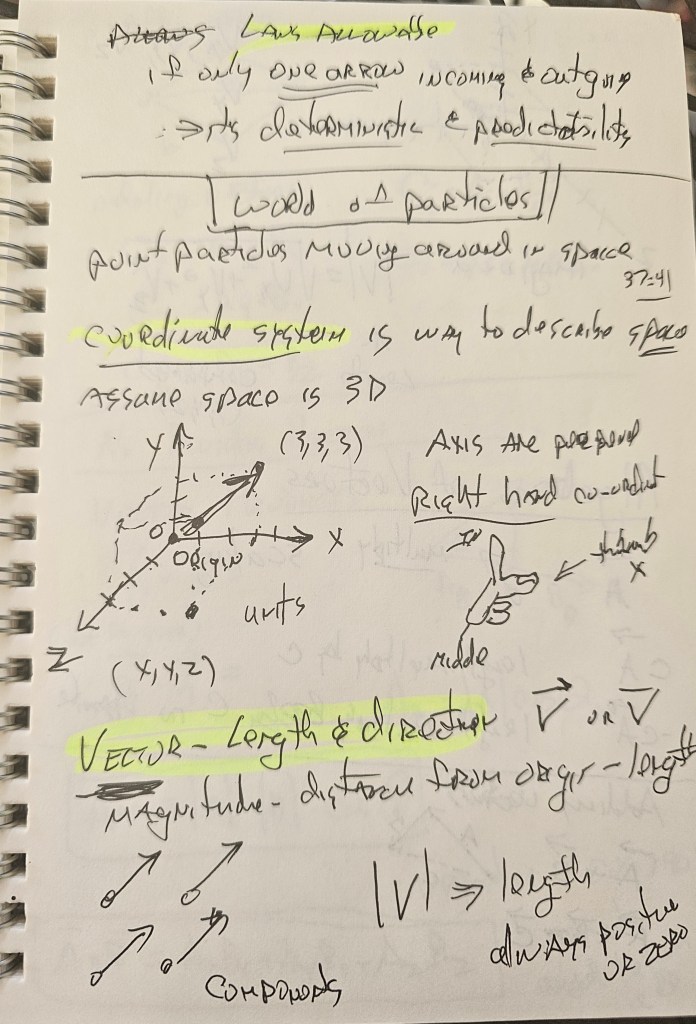 Laws Allowable
if only one arrow incoming & outgoing
⇒ its deterministic & predictability
World of particles
point particles moving around in space
37:41
coordinate system is way to describe space
Assume space is 3D
Y
(3,3,3)
Axis are
Right hand
0
Origin
X
In
thumb
X
units
Z
(X,Y,Z)
Middle
Vector - Length & direction V⃗ or V̅
Magnitude - distance from origin - length
|V| ⇒ length
always positive
or zero
Components